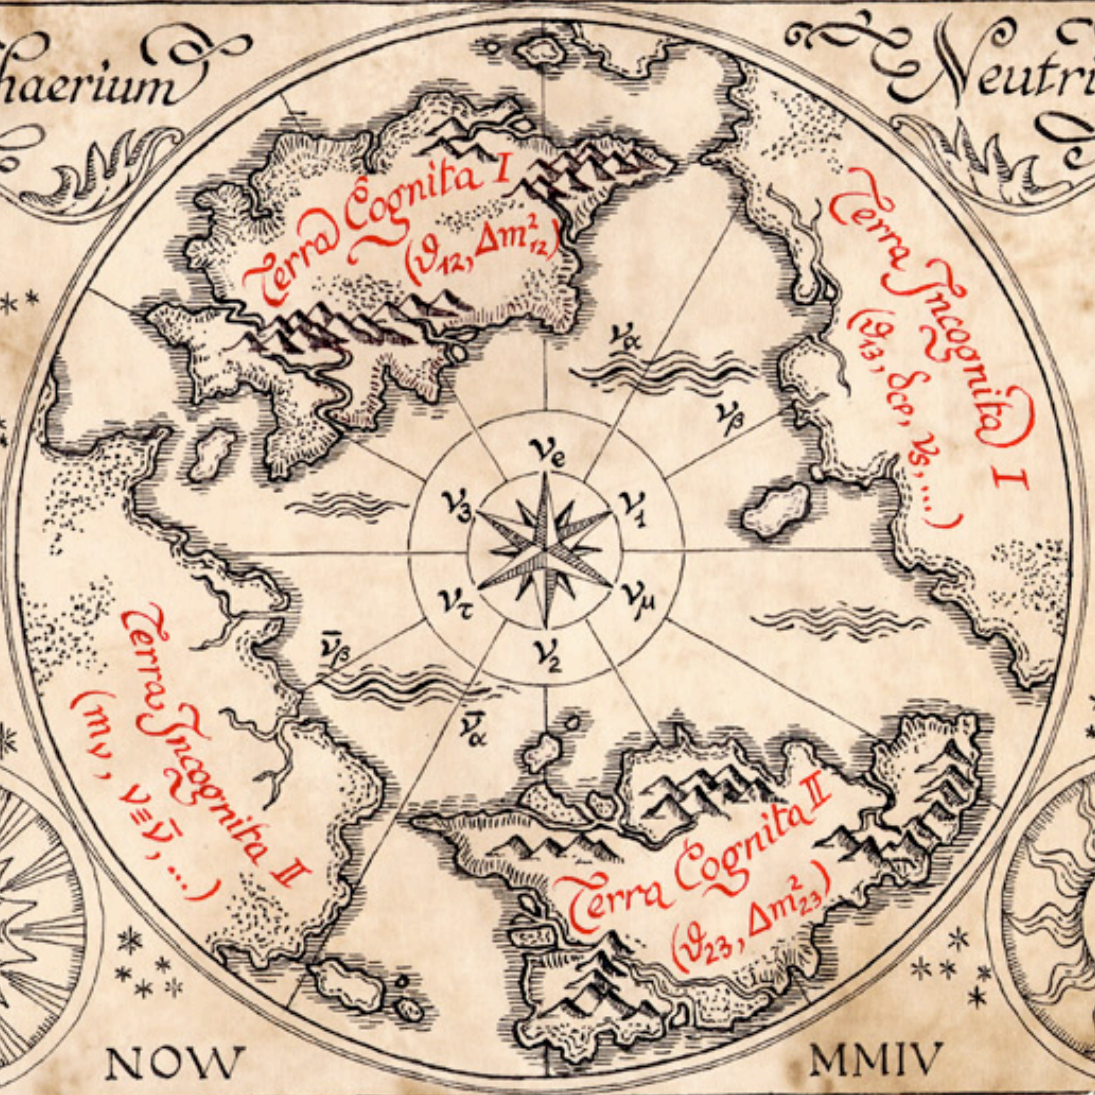 haerium
Neutri
Terra Cognita I
(ϑ₁₂, Δm²₁₂)
Terra Incognita I
(ϑ₁₃, δcp, νs, ...)
να
νβ
νe
ν3
ν1
ντ
νμ
ν2
ν̄β
ν̄α
Terra Incognita II
(mν, ν≡ν̄, ...)
Terra Cognita II
(ϑ₂₃, Δm²₂₃)
NOW
MMIV